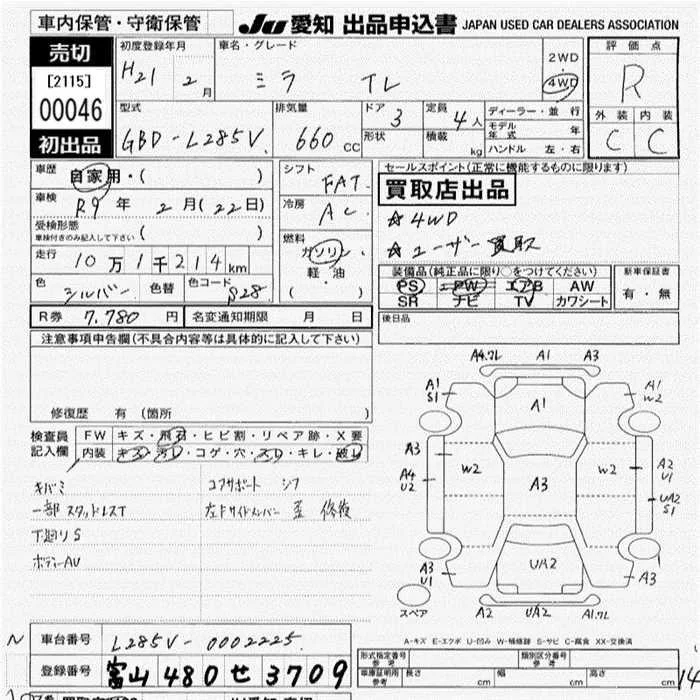 車内保管・守衛保管
JU 愛知 出品申込書 JAPAN USED CAR DEALERS ASSOCIATION
売切
[2115]
00046
初出品
初度登録年月 H21 2月
車名・グレード ミラ TL
2WD
・
4WD
評価点
R
外装 内装
C C
型式 GBD-L285V
排気量 660 CC
ドア 3
形状
定員 4人
積載 kg
ディーラー・並行
モデル年式 年
ハンドル 左・右
車歴 自家用・( )
車検 R9年 2月(22日)
受検形態
車検付きのみ記入して下さい ( )
走行 10万1千214km
色 シルバー 色替 色コード S28
シフト FAT
冷房 AC
燃料
ガソリン
軽・油
( )
セールスポイント(正常に機能するものに限ります)
買取店出品
☆4WD
☆ユーザー買取
装備品(純正品に限り○をつけてください)
PS PW エアB AW
SR ナビ TV カワシート
新車保証書
有・無
後日品
R券 7,780円 名変通知期限 月 日
注意事項申告欄(不具合内容等は具体的に記入して下さい)
修復歴 有 (箇所 )
検査員記入欄
FW キズ・飛石・ヒビ割・リペア跡・X要
内装 キズ・汚レ・コゲ・穴・スレ・キレ・破レ
キバミ コアサポート シフ
一部スタッドレスT 左Fサイドメンバー 歪 修後
下廻りS
ボディーAU
A4.フレ A1 A3
A1 S1 A1 A1 W2
A3
A4 U2 W2 A3 W2 A2 U1
UA2 S1
UA2
A3 U1 A3
スペア A2 UA2 A1.フレ
A-キズ E-エクボ U-凹み W-補修跡 S-サビ C-腐食 XX-交換済
N
車台番号 L285V-0002225
登録番号 富山 480 せ 3709
型式指定番号 参考 類別区分番号 参考
車庫証明用 参考 長さ cm 幅 cm 高さ cm
14